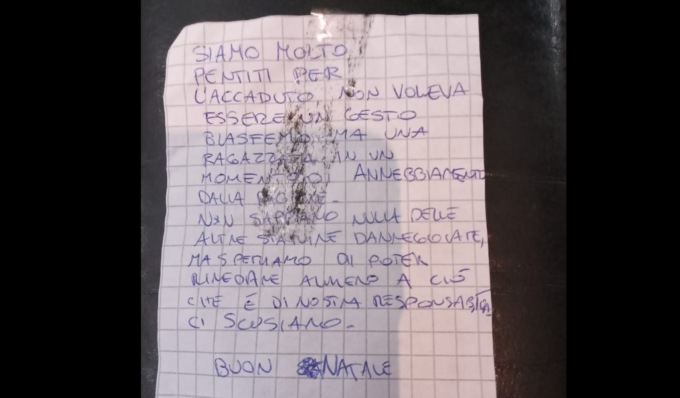 SIAMO MOLTO
PENTITI PER
L'ACCADUTO, NON VOLEVA
ESSERE UN GESTO
BLASFEMO MA UNA
RAGAZZATA IN UN
MOMENTO DI ANNEBBIAMENTO
DALLA
NON SAPPIAMO NULLA DELLE
ALTRE STATUINE DANNEGGIATE,
MA SPERIAMO DI POTER
RIMEDIARE ALMENO A CIÒ
CHE È DI NOSTRA RESPONSABILITÀ
CI SCUSIAMO.
BUON NATALE